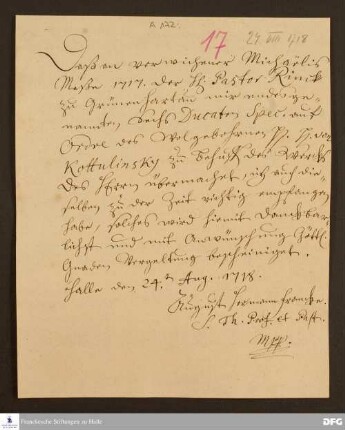 17
24. VIII 1718
Daß an verwichener Michaelis
Messe 1717. der H. Pastor Rinck
zu Grünenhartau mir unterge-
nannten, sechs Ducaten Spec. auf
Ordre des Wolgebohrnen
Kottulinsky zu behuff des Wercks
des Herrn übermachet, ich auch die-
selben zu der Zeit richtig empfangen
habe, solches wird hiemit danckbar-
lichst und mit Anwünschung Göttl.
Gnaden Vergeltung bescheiniget.
Halle den 24.t Aug. 1718.
August Hermann Francke.
S. Th. Prof. et Past.
Mpp.
Franckesche Stiftungen zu Halle
DFG